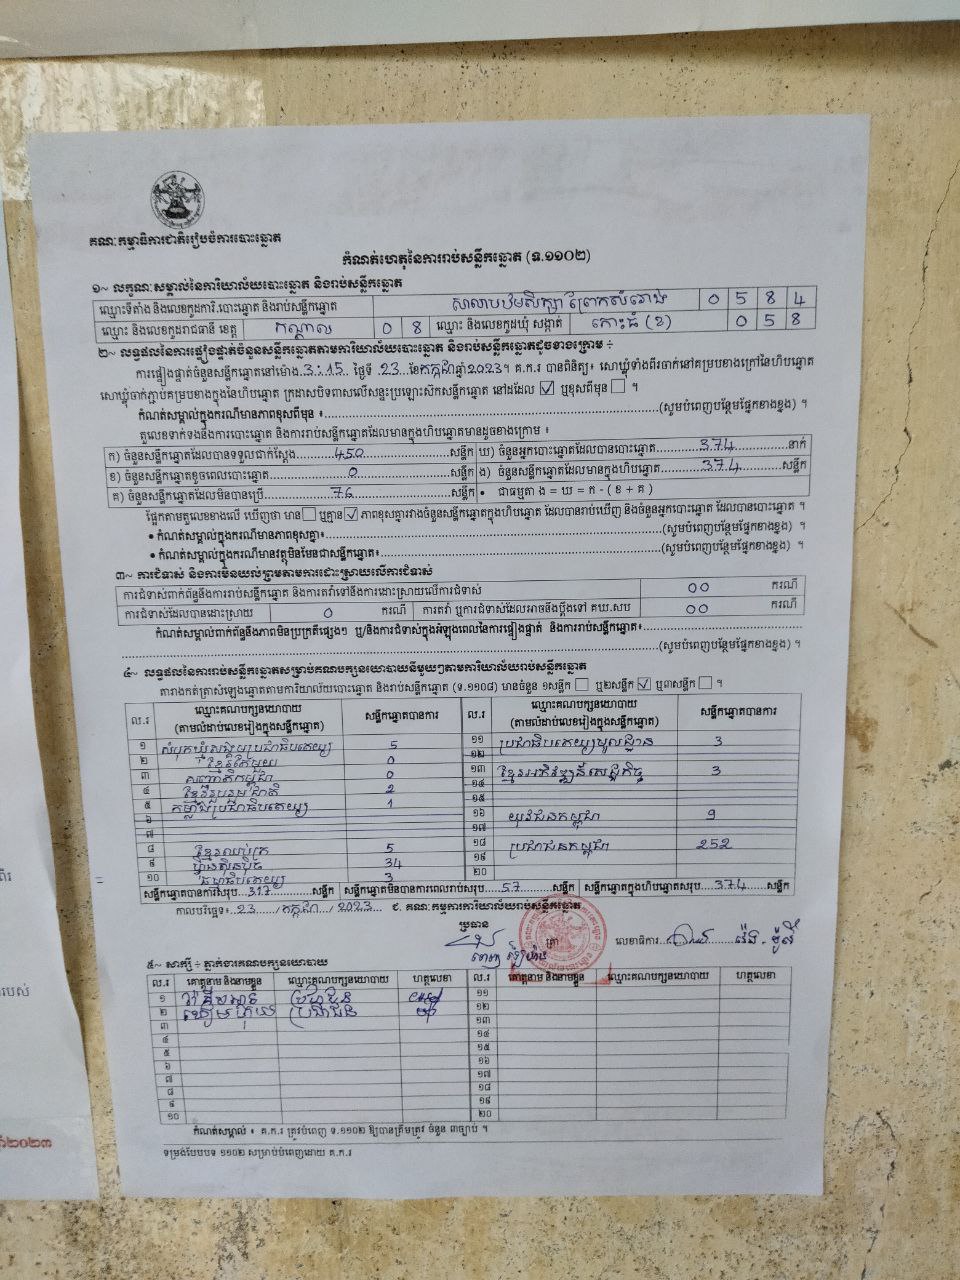 គណៈកម្មាធិការជាតិរៀបចំការបោះឆ្នោត
កំណត់ហេតុនៃការរាប់សន្លឹកឆ្នោត (ទ.១១០២)
១~ លក្ខណៈសម្គាល់នៃការិយាល័យបោះឆ្នោត និងរាប់សន្លឹកឆ្នោត
ឈ្មោះទីតាំង និងលេខកូដការិ.បោះឆ្នោត និងរាប់សន្លឹកឆ្នោត សាលាបឋមសិក្សា ព្រែកសំរោង 0 5 8 4
ឈ្មោះ និងលេខកូដរាជធានី ខេត្ត កណ្តាល 0 8 ឈ្មោះ និងលេខកូដឃុំ សង្កាត់ កោះធំ (ខ) 0 5 8
២~ លទ្ធផលនៃការផ្ទៀងផ្ទាត់ចំនួនសន្លឹកឆ្នោតតាមការិយាល័យបោះឆ្នោត និងរាប់សន្លឹកឆ្នោតដូចខាងក្រោម ÷
ការផ្ទៀងផ្ទាត់ចំនួនសន្លឹកឆ្នោតនៅម៉ោង 3:15 ថ្ងៃទី 23 ខែកក្កដាឆ្នាំ2023។ គ.ក.រ បានពិនិត្យ៖ សោឃ្លុំទាំងពីរចាក់នៅគម្របខាងក្រៅនៃហិបឆ្នោត
សោឃ្លុំចាក់ភ្ជាប់គម្របខាងក្នុងនៃហិបឆ្នោត ក្រដាសបិទពាសលើសន្ទះប្រឡោះស៊កសន្លឹកឆ្នោត នៅដដែល ☑ ឬខុសពីមុន ☐ ។
កំណត់សម្គាល់ក្នុងករណីមានភាពខុសពីមុន ៖ (សូមបំពេញបន្ថែមផ្នែកខាងខ្នង) ។
តួលេខទាក់ទងនឹងការបោះឆ្នោត និងការរាប់សន្លឹកឆ្នោតដែលមានក្នុងហិបឆ្នោតមានដូចខាងក្រោម ៖
ក) ចំនួនសន្លឹកឆ្នោតដែលបានទទួលជាក់ស្តែង 450 សន្លឹក ឃ) ចំនួនអ្នកបោះឆ្នោតដែលបានបោះឆ្នោត 374 នាក់
ខ) ចំនួនសន្លឹកឆ្នោតខូចពេលបោះឆ្នោត 0 សន្លឹក ង) ចំនួនសន្លឹកឆ្នោតដែលមានក្នុងហិបឆ្នោត 374 សន្លឹក
គ) ចំនួនសន្លឹកឆ្នោតដែលមិនបានប្រើ 76 សន្លឹក • ជាធម្មតា ង = ឃ = ក - ( ខ + គ )
ផ្អែកតាមតួលេខខាងលើ ឃើញថា មាន ☐ ឬគ្មាន ☑ ភាពខុសគ្នារវាងចំនួនសន្លឹកឆ្នោតក្នុងហិបឆ្នោត ដែលបានរាប់ឃើញ និងចំនួនអ្នកបោះឆ្នោត ដែលបានបោះឆ្នោត ។
• កំណត់សម្គាល់ក្នុងករណីមានភាពខុសគ្នា៖ (សូមបំពេញបន្ថែមផ្នែកខាងខ្នង) ។
• កំណត់សម្គាល់ក្នុងករណីមានវត្ថុមិនមែនជាសន្លឹកឆ្នោត៖ (សូមបំពេញបន្ថែមផ្នែកខាងខ្នង) ។
៣~ ការជំទាស់ និងការមិនយល់ព្រមតាមការដោះស្រាយលើការជំទាស់
ការជំទាស់ពាក់ព័ន្ធនឹងការរាប់សន្លឹកឆ្នោត និងការតវ៉ាទៅនឹងការដោះស្រាយលើការជំទាស់ 00 ករណី
ការជំទាស់ដែលបានដោះស្រាយ 0 ករណី ការតវ៉ា ឬការជំទាស់ដែលអាចនឹងប្តឹងទៅ គឃ.សប 00 ករណី
កំណត់សម្គាល់ពាក់ព័ន្ធនឹងភាពមិនប្រក្រតីផ្សេងៗ ឬ/និងការជំទាស់ក្នុងអំឡុងពេលនៃការផ្ទៀងផ្ទាត់ និងការរាប់សន្លឹកឆ្នោត៖
(សូមបំពេញបន្ថែមផ្នែកខាងខ្នង) ។
៤~ លទ្ធផលនៃការរាប់សន្លឹកឆ្នោតសម្រាប់គណបក្សនយោបាយនីមួយៗតាមការិយាល័យរាប់សន្លឹកឆ្នោត
តារាងកត់ត្រាសំឡេងឆ្នោតតាមការិយាល័យបោះឆ្នោត និងរាប់សន្លឹកឆ្នោត (ទ.១១០៨) មានចំនួន ១សន្លឹក ☐ ឬ២សន្លឹក ☑ ឬ៣សន្លឹក ☐ ។
ល.រ ឈ្មោះគណបក្សនយោបាយ (តាមលំដាប់លេខរៀងក្នុងសន្លឹកឆ្នោត) សន្លឹកឆ្នោតបានការ ល.រ ឈ្មោះគណបក្សនយោបាយ (តាមលំដាប់លេខរៀងក្នុងសន្លឹកឆ្នោត) សន្លឹកឆ្នោតបានការ
១ សំបុកឃ្មុំសង្គមប្រជាធិបតេយ្យ 5 ១១ ប្រជាធិបតេយ្យមូលដ្ឋាន 3
២ ខ្មែរតែមួយ 0 ១២
៣ សញ្ជាតិកម្ពុជា 0 ១៣ ខ្មែរអភិវឌ្ឍន៍សេដ្ឋកិច្ច 3
៤ ខ្មែររួបរួមជាតិ 2 ១៤
៥ កម្លាំងប្រជាធិបតេយ្យ 1 ១៥
៦ ១៦ យុវជនកម្ពុជា 9
៧ ១៧
៨ ខ្មែរឈប់ក្រ 5 ១៨ ប្រជាជនកម្ពុជា 252
៩ ហ្វ៊ុនស៊ិនប៉ិច 34 ១៩
១០ ធម្មាធិបតេយ្យ 3 ២០
សន្លឹកឆ្នោតបានការសរុប 317 សន្លឹក សន្លឹកឆ្នោតមិនបានការពេលរាប់សរុប 57 សន្លឹក សន្លឹកឆ្នោតក្នុងហិបឆ្នោតសរុប 374 សន្លឹក
កាលបរិច្ឆេទ៖ 23 / កក្កដា / 2023 ៩. គណៈកម្មការការិយាល័យរាប់សន្លឹកឆ្នោត
ប្រធាន
ត្រា លេខាធិការ
៥~ សាក្សី ÷ ភ្នាក់ងារគណបក្សនយោបាយ
ល.រ គោត្តនាម និងនាមខ្លួន ឈ្មោះគណបក្សនយោបាយ ហត្ថលេខា ល.រ គោត្តនាម និងនាមខ្លួន ឈ្មោះគណបក្សនយោបាយ ហត្ថលេខា
១ ប្រជាជន ១១
២ ប្រជាជន ១២
៣ ១៣
៤ ១៤
៥ ១៥
៦ ១៦
៧ ១៧
៨ ១៨
៩ ១៩
១០ ២០
កំណត់សម្គាល់ ៖ គ.ក.រ ត្រូវបំពេញ ទ.១១០២ ឱ្យបានត្រឹមត្រូវ ចំនួន ៣ច្បាប់ ។
ទម្រង់បែបបទ ១១០២ សម្រាប់បំពេញដោយ គ.ក.រ